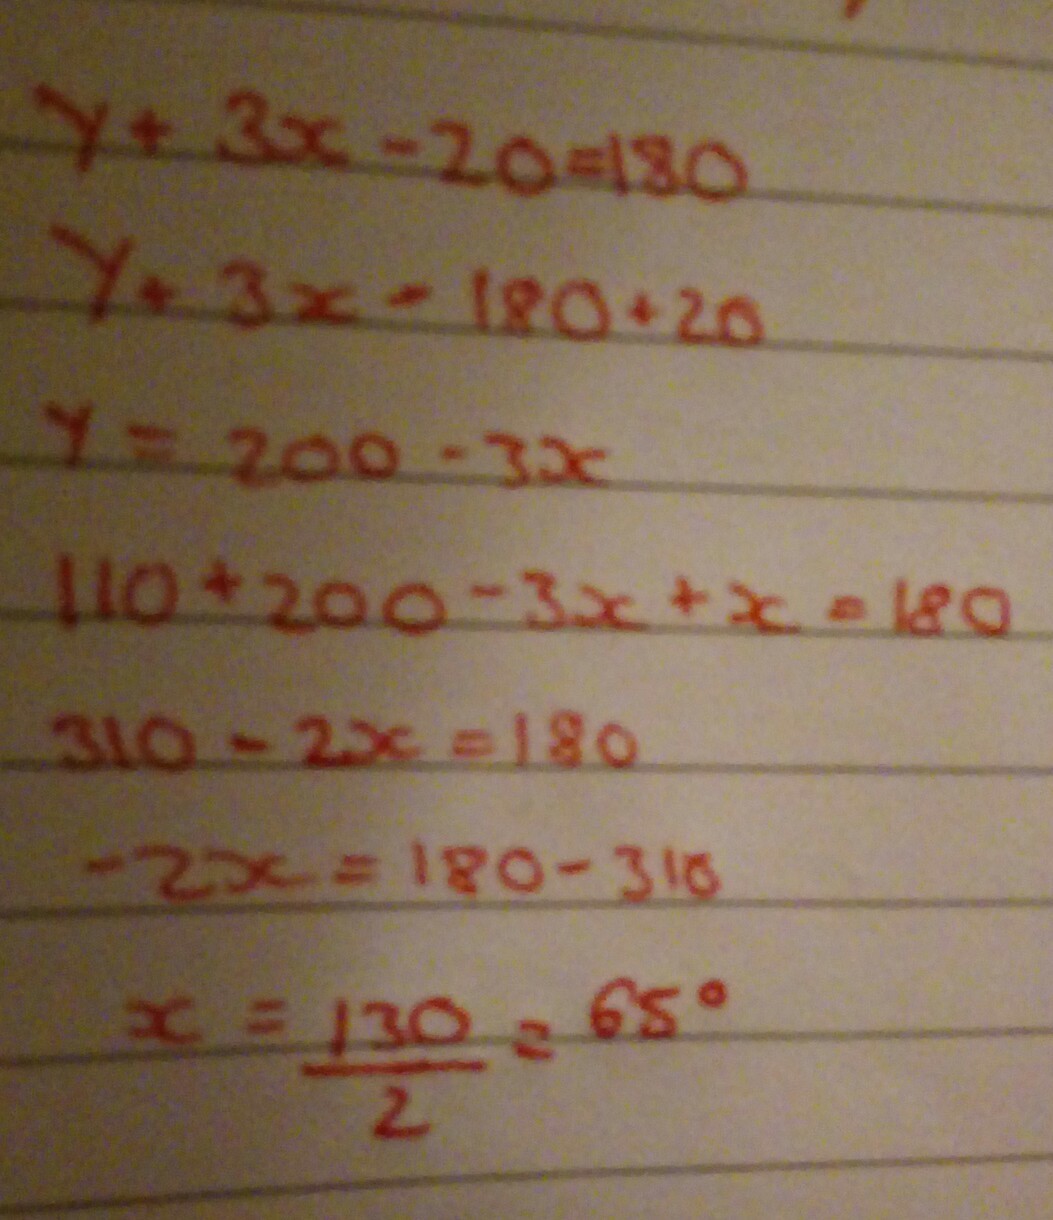 y + 3x - 20 = 180
y + 3x - 180 + 20
y = 200 - 3x
110 + 200 - 3x + x = 180
310 - 2x = 180
-2x = 180 - 310
x = 130/2 = 65°